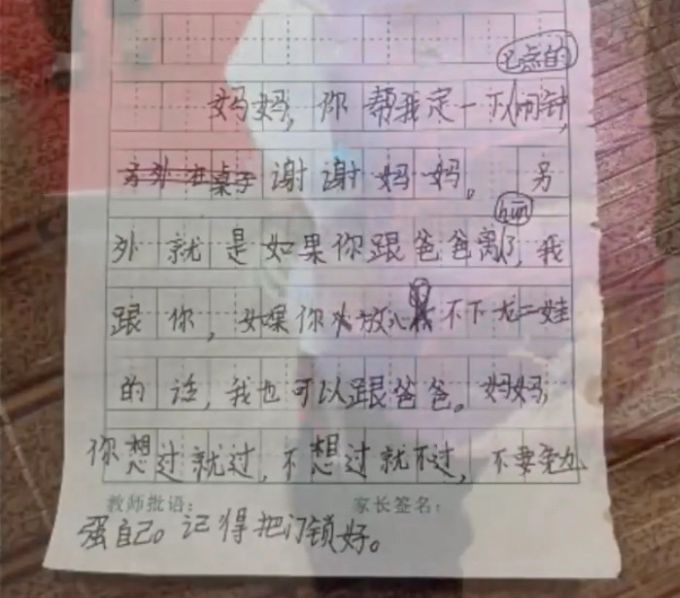 点的
妈妈,你帮我定一下闹钟,
另外在桌子谢谢妈妈。另
hūn
外就是如果你跟爸爸离了,我
跟你,如果你放心不下二娃
的话,我也可以跟爸爸。妈妈
你想过就过,不想过就不过,不要勉
教师批语: 家长签名:
强自己。记得把门锁好。